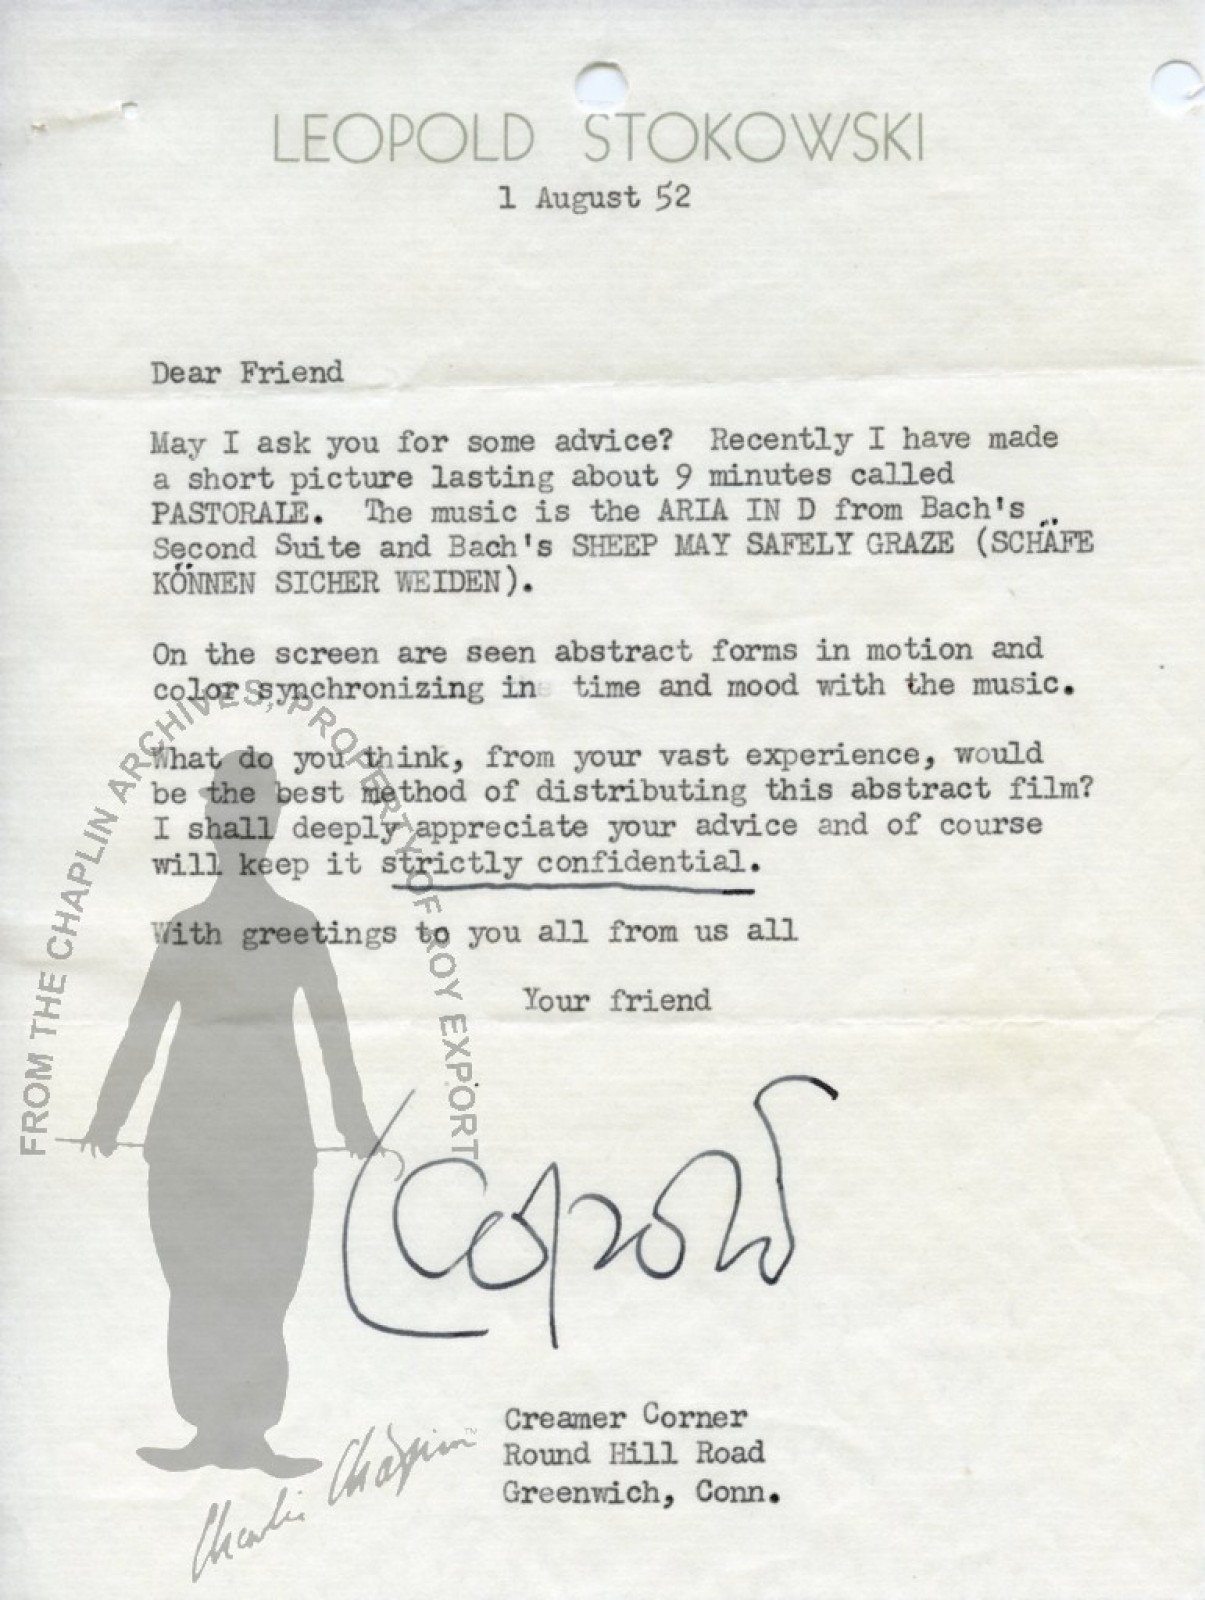 LEOPOLD STOKOWSKI
1 August 52
Dear Friend
May I ask you for some advice? Recently I have made
a short picture lasting about 9 minutes called
PASTORALE. The music is the ARIA IN D from Bach's
Second Suite and Bach's SHEEP MAY SAFELY GRAZE (SCHÄFE
KÖNNEN SICHER WEIDEN).
On the screen are seen abstract forms in motion and
color synchronizing in time and mood with the music.
What do you think, from your vast experience, would
be the best method of distributing this abstract film?
I shall deeply appreciate your advice and of course
will keep it strictly confidential.
With greetings to you all from us all
Your friend
Leopold
Creamer Corner
Round Hill Road
Greenwich, Conn.
FROM THE CHAPLIN ARCHIVES, PROPERTY OF ROY EXPORT
Charlie Chaplin™